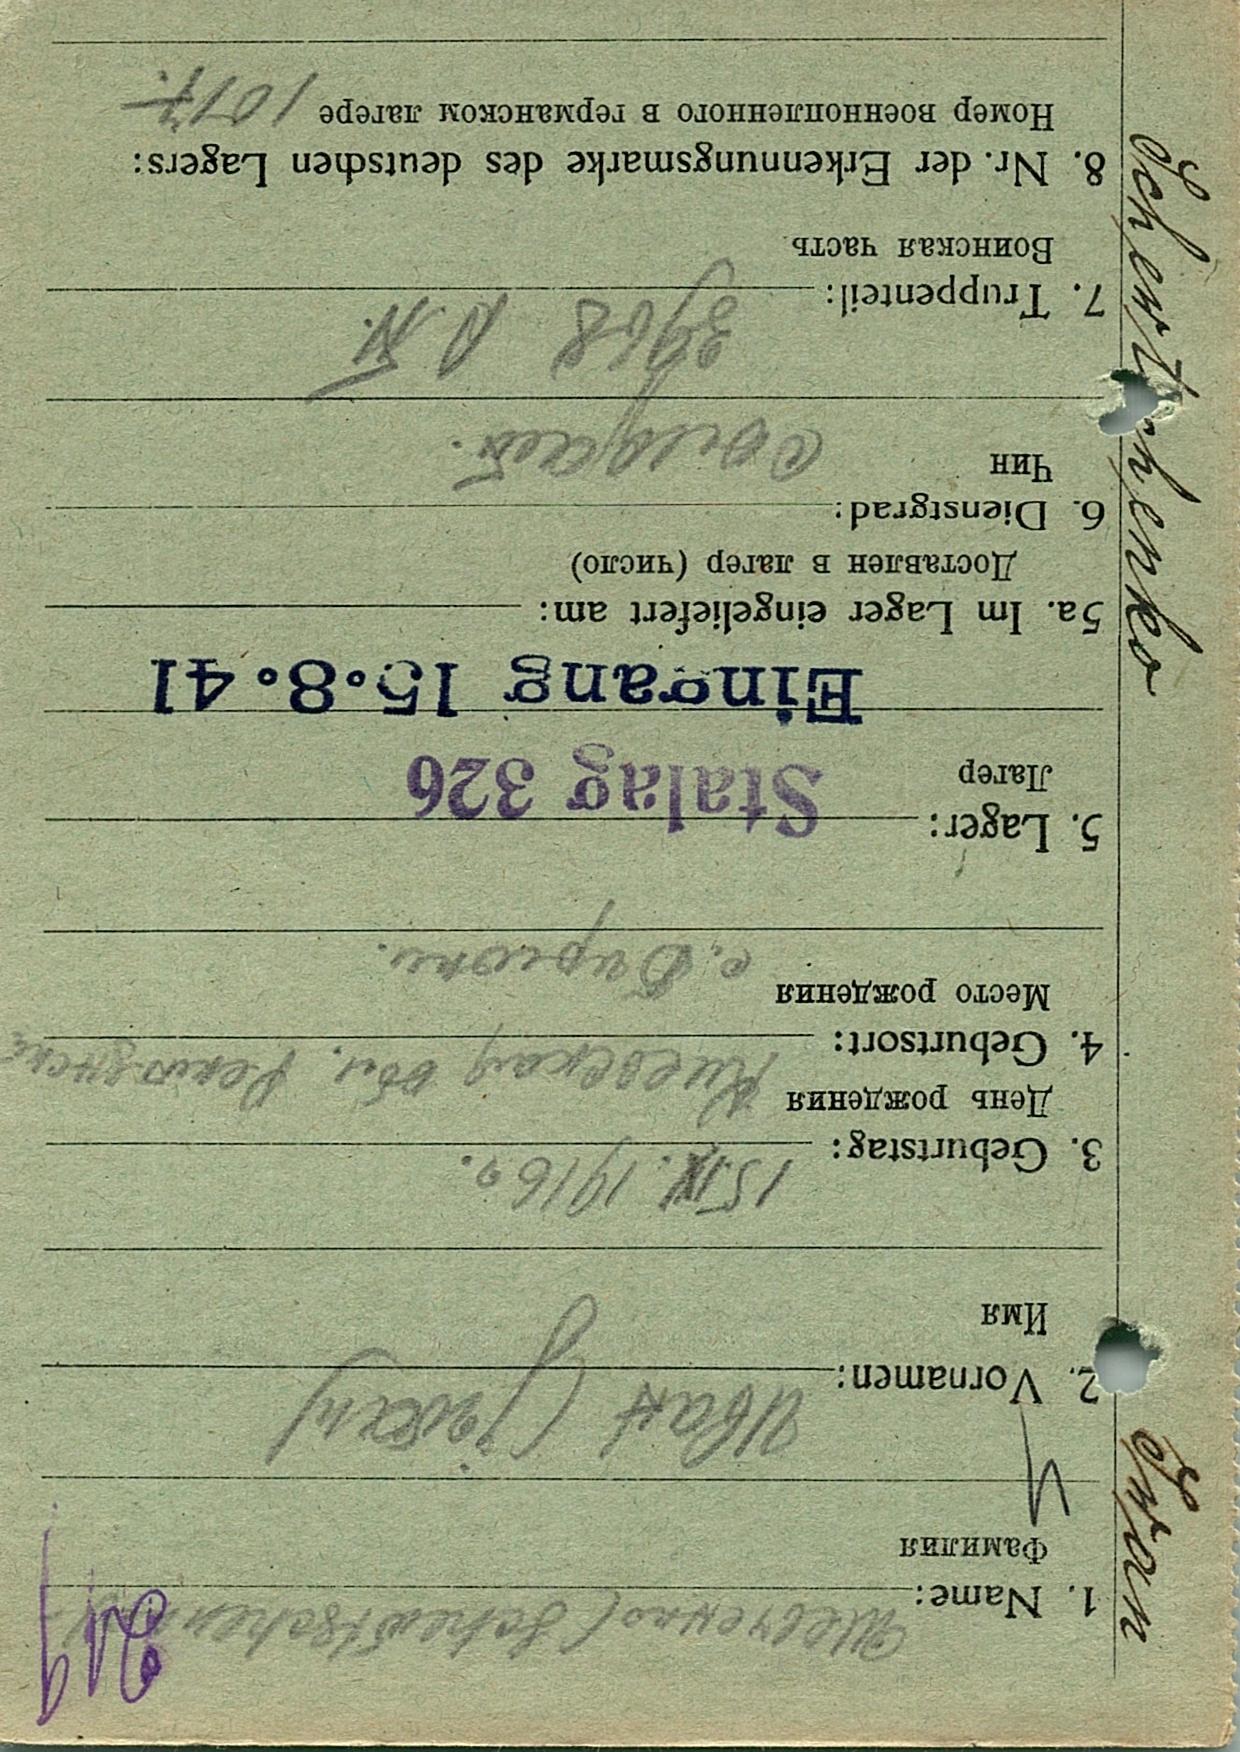 1. Name: Шевченко (Schewtschenko
Фамилия
2. Vornamen: Иван (Jwan)
Имя
3. Geburtstag: 15.IX.1916г.
День рождения
4. Geburtsort: Киевская обл.
Место рождения
с.
5. Lager: Stalag 326
Лагер
Eingang 15.8.41
5a. Im Lager eingeliefert am:
Доставлен в лагер (число)
6. Dienstgrad:
Чин солдат.
7. Truppenteil: 3968
Воинская часть
8. Nr. der Erkennungsmarke des deutschen Lagers:
Номер военнопленного в германском лагере 1017.
Schewtschenko
Iwan